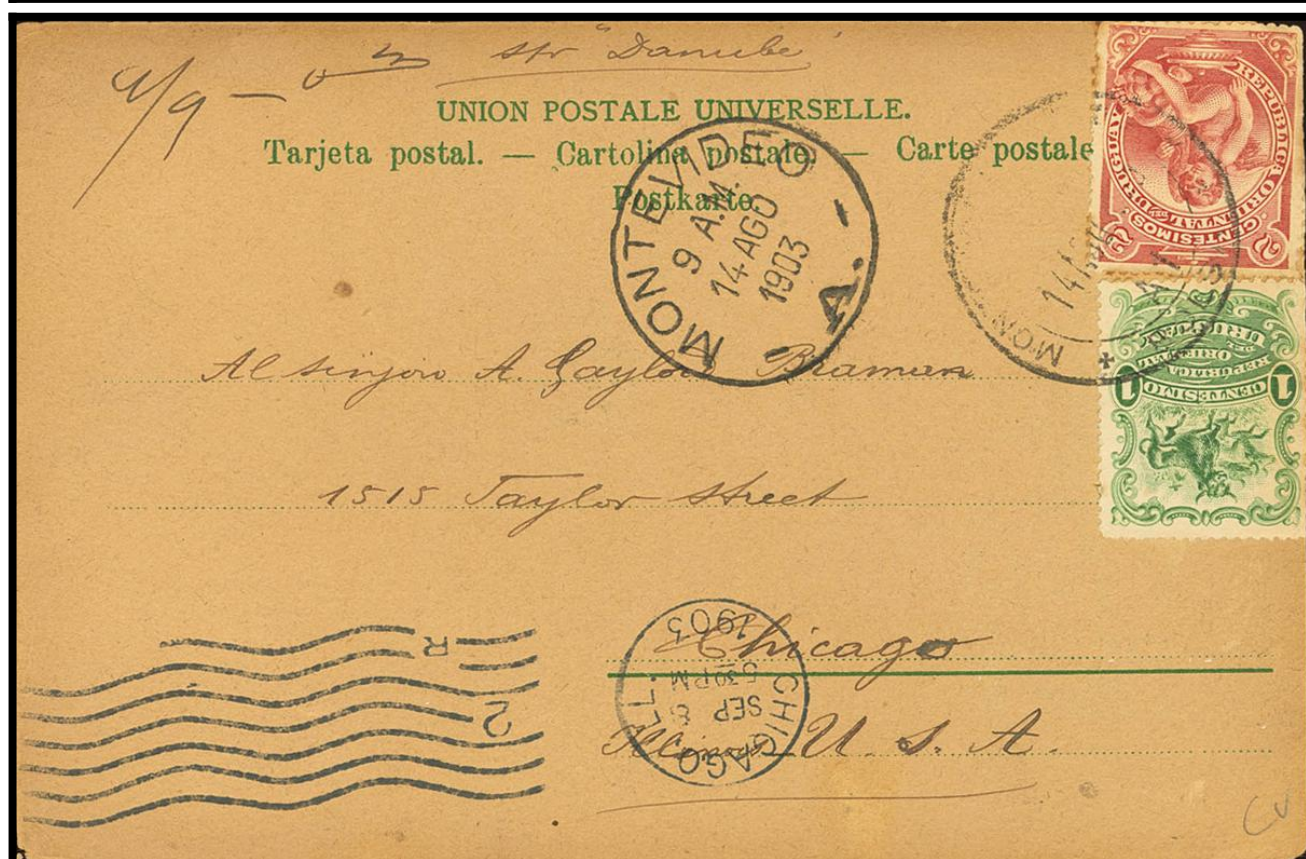 str "Danube"
UNION POSTALE UNIVERSELLE.
Tarjeta postal. — Cartolina postale. — Carte postale
Postkarte.
MONTEVIDEO
9 A.M.
14 AGO
1903
- A. -
MON
14
2 CENTESIMOS 2
REPUBLICA ORIENTAL DEL URUGUAY
1 CENTESIMO 1
REPUBLICA ORIENTAL
DEL
URUGUAY
Al sinjoro A. Gaylord Braman
1515 Taylor Street
Chicago
Illinois U. S. A.
CHICAGO ILL.
SEP 8
5 30 PM
1903
R
2